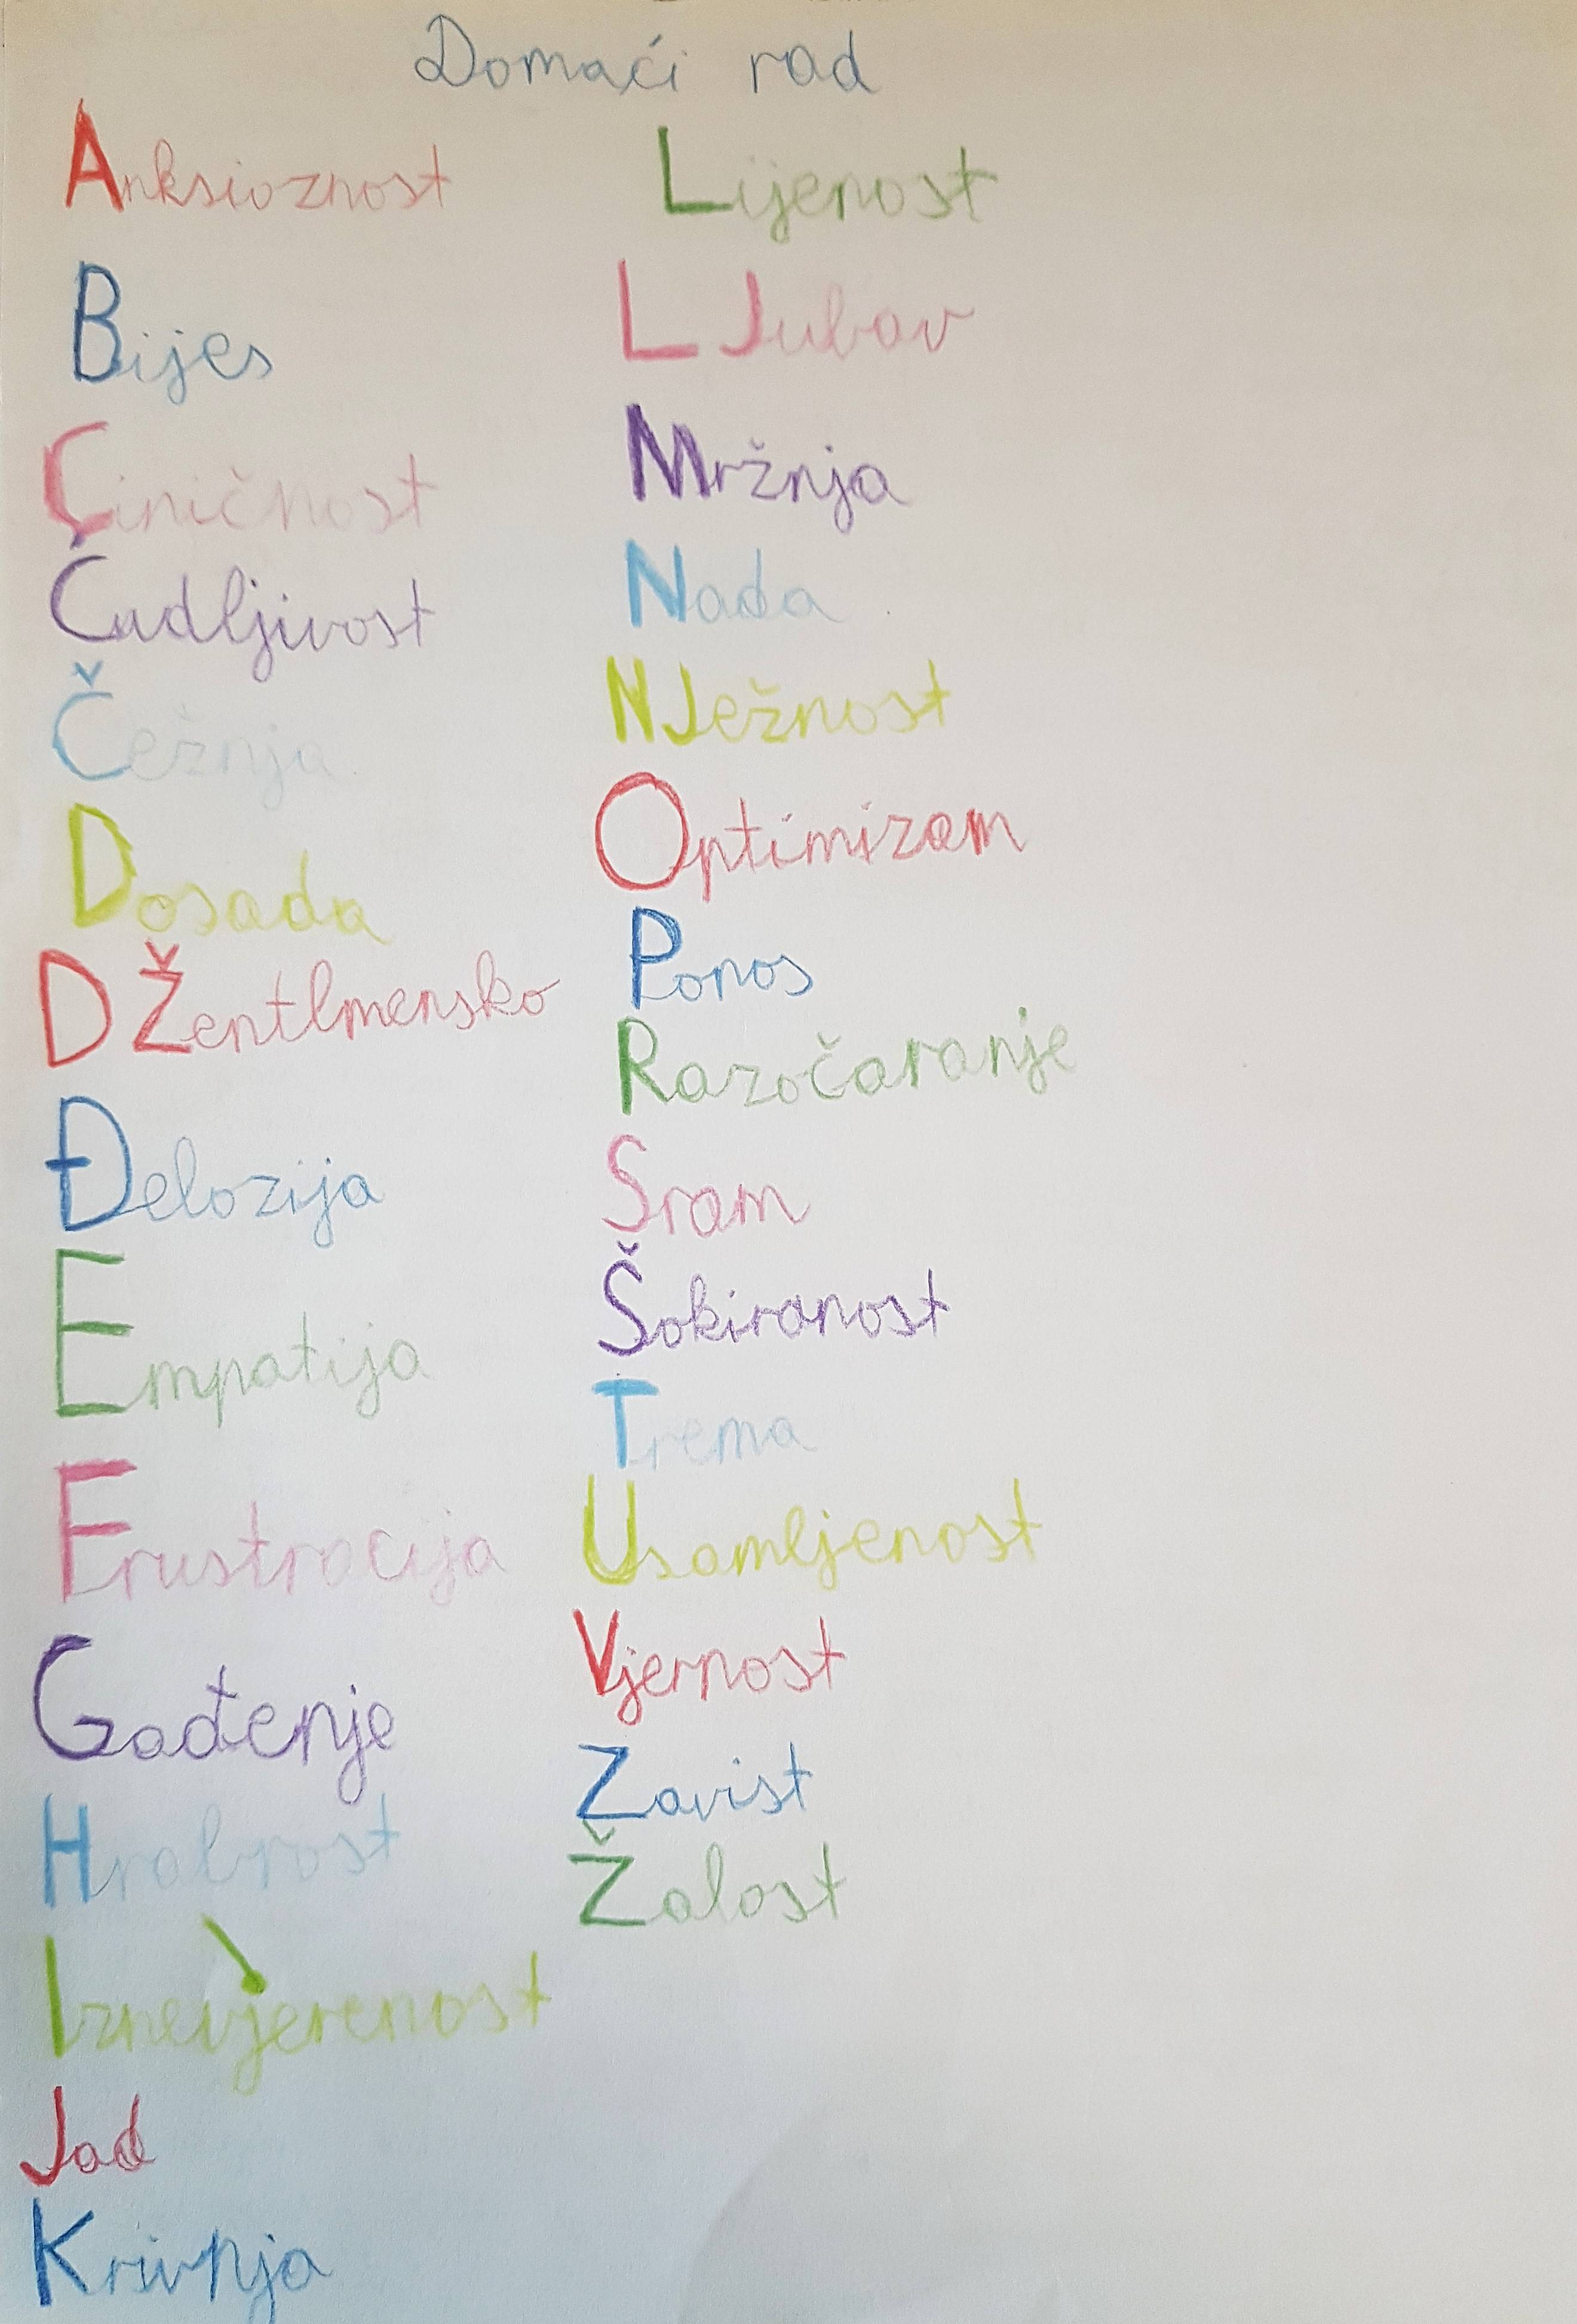 Domaći rad
Anksioznost
Bijes
Ciničnost
Ćudljivost
Čežnja
Dosada
DŽentlmensko
Đelozija
Empatija
Frustracija
Gađenje
Hrabrost
Iznevjerenost
Jad
Krivnja
Lijenost
LJubav
Mržnja
Nada
NJežnost
Optimizam
Ponos
Razočaranje
Sram
Šokiranost
Trema
Usamljenost
Vjernost
Zavist
Žalost